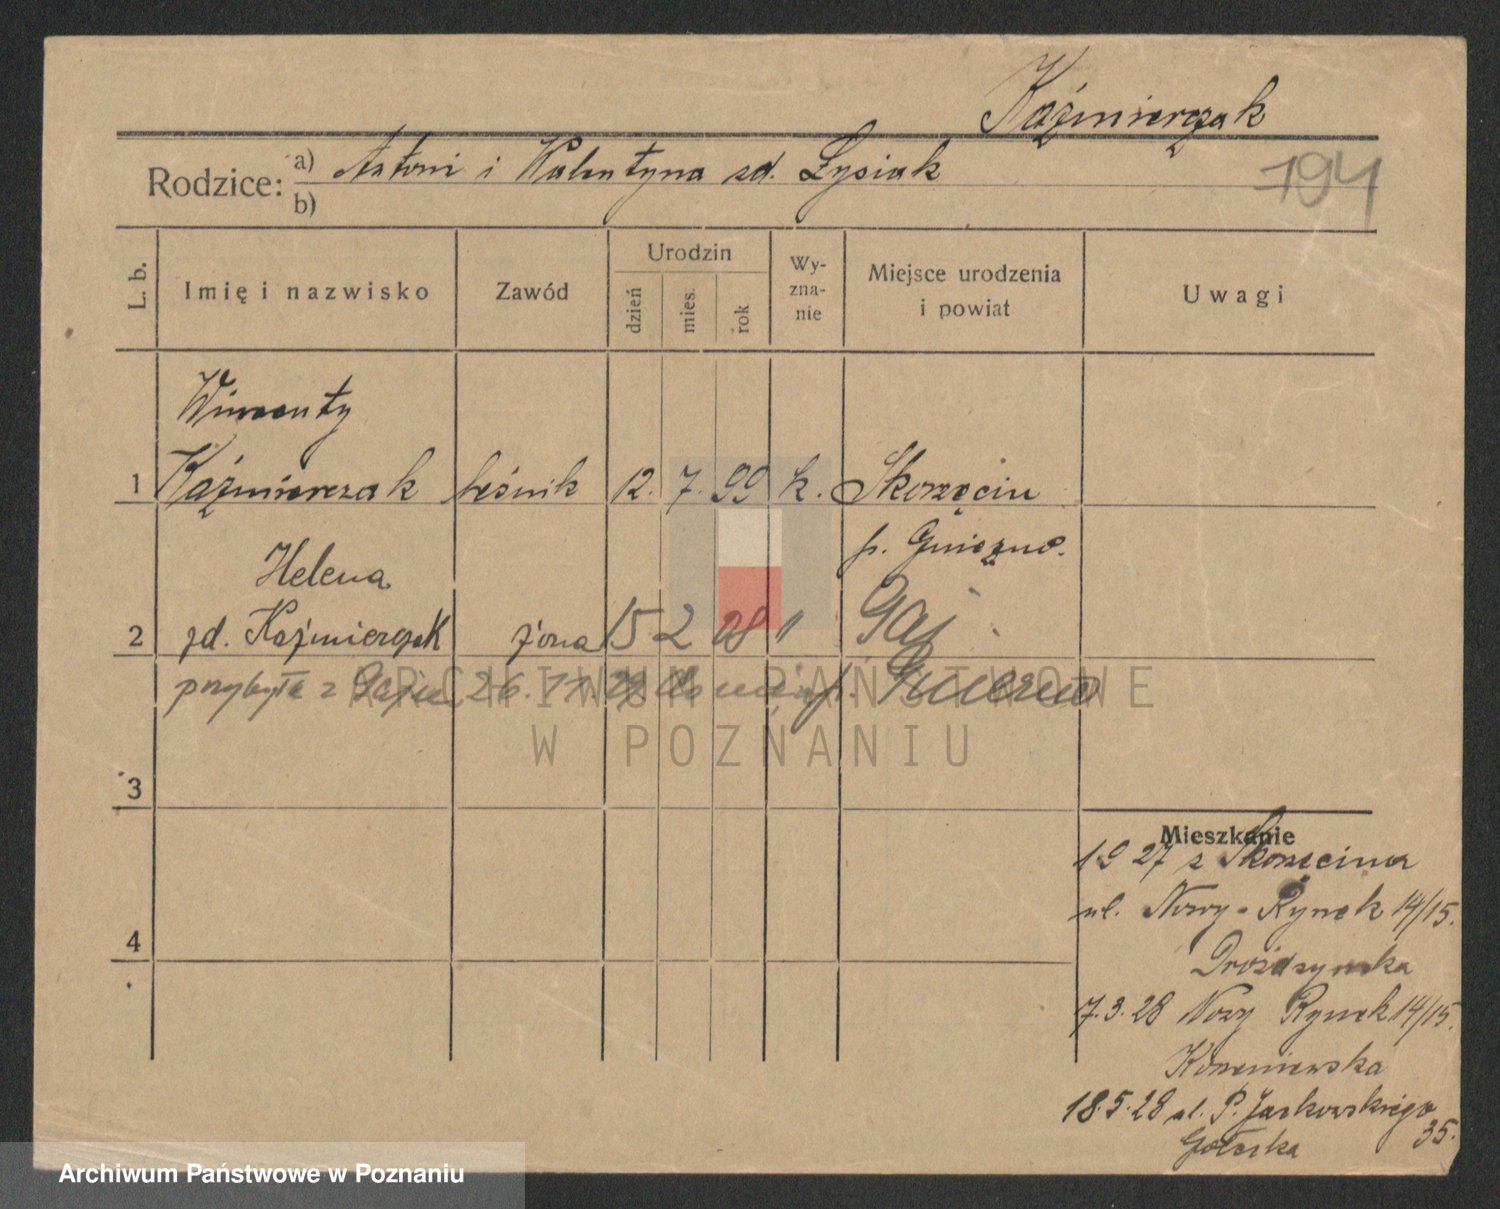 Kaźmierczak
Rodzice: a) Antoni i Walentyna zd. Łysiak
b)
194
L. b.
Imię i nazwisko
Zawód
Urodzin
dzień
mies.
rok
Wy-
zna-
nie
Miejsce urodzenia
i powiat
Uwagi
Wincenty
1 Kaźmierczak leśnik 12. 7. 99 k. Skorzęcin
p. Gniezno.
Helena
2 zd. Kaźmierczak żona 15 2 08 " Gaj
przybyła z Gaju 26. 11. p. Gniezno
ARCHIWUM PAŃSTWOWE
W POZNANIU
3
Mieszkanie
19 27 z Skorzęcina
ul. Nowy-Rynek 14/15.
4
Drożdzynska
7.3.28 Nowy Rynek 14/15.
Korzeniewska
18.5.28 ul. P. Jackowskiego
35.
Archiwum Państwowe w Poznaniu